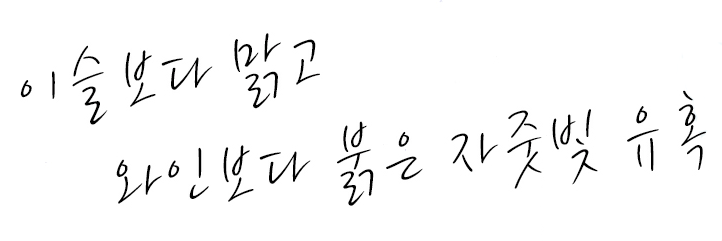 이슬보다 맑고
와인보다 붉은 자줏빛 유혹